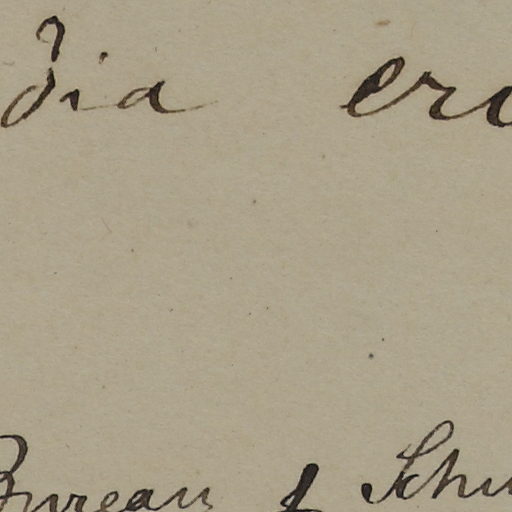 dia er
Bureau f. Schu